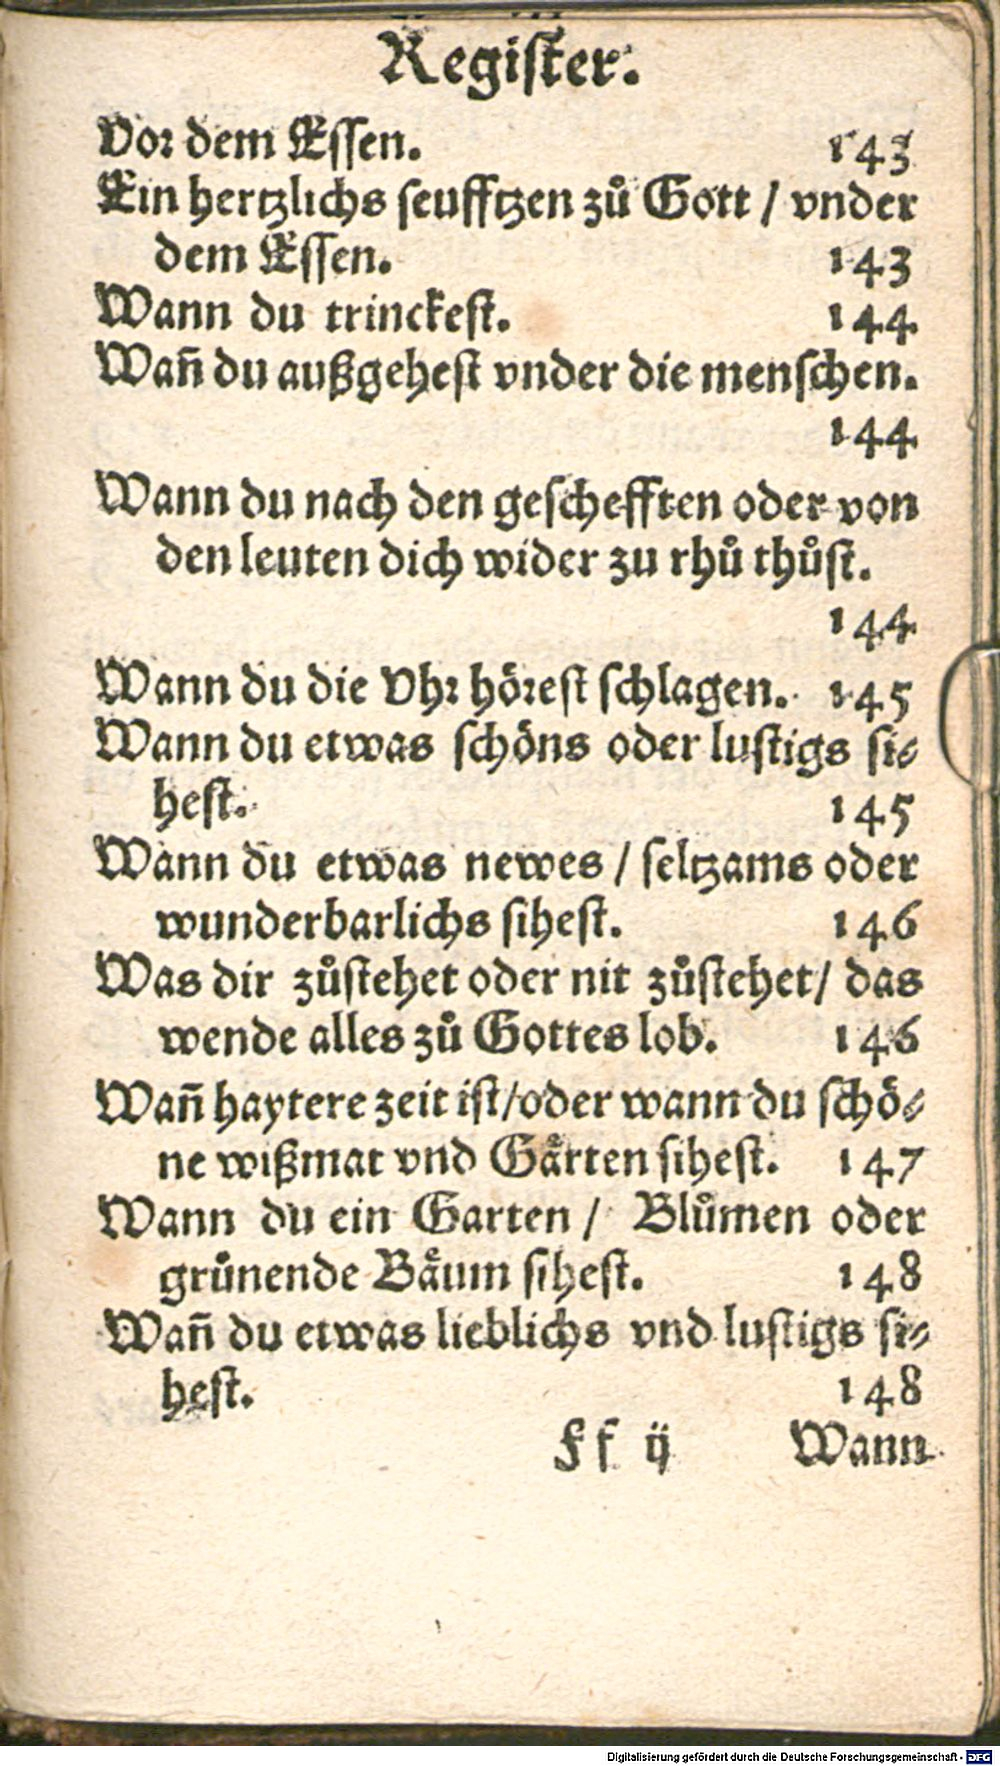 Register.
Vor dem Essen. 143
Ein hertzlichs seufftzen zů Gott / vnder
dem Essen. 143
Wann du trinckest. 144
Wañ du außgehest vnder die menschen.
144
Wann du nach den geschefften oder von
den leuten dich wider zu rhů thůst.
144
Wann du die Vhr hörest schlagen. 145
Wann du etwas schöns oder lustigs si-
hest. 145
Wann du etwas newes / seltzams oder
wunderbarlichs sihest. 146
Was dir zůstehet oder nit zůstehet / das
wende alles zů Gottes lob. 146
Wañ haytere zeit ist / oder wann du schö-
ne wißmat vnd Gaͤrten sihest. 147
Wann du ein Garten / Blůmen oder
grůnende Baͤum sihest. 148
Wañ du etwas lieblichs vnd lustigs si-
hest. 148
Ff ij Wann
Digitalisierung gefördert durch die Deutsche Forschungsgemeinschaft - DFG